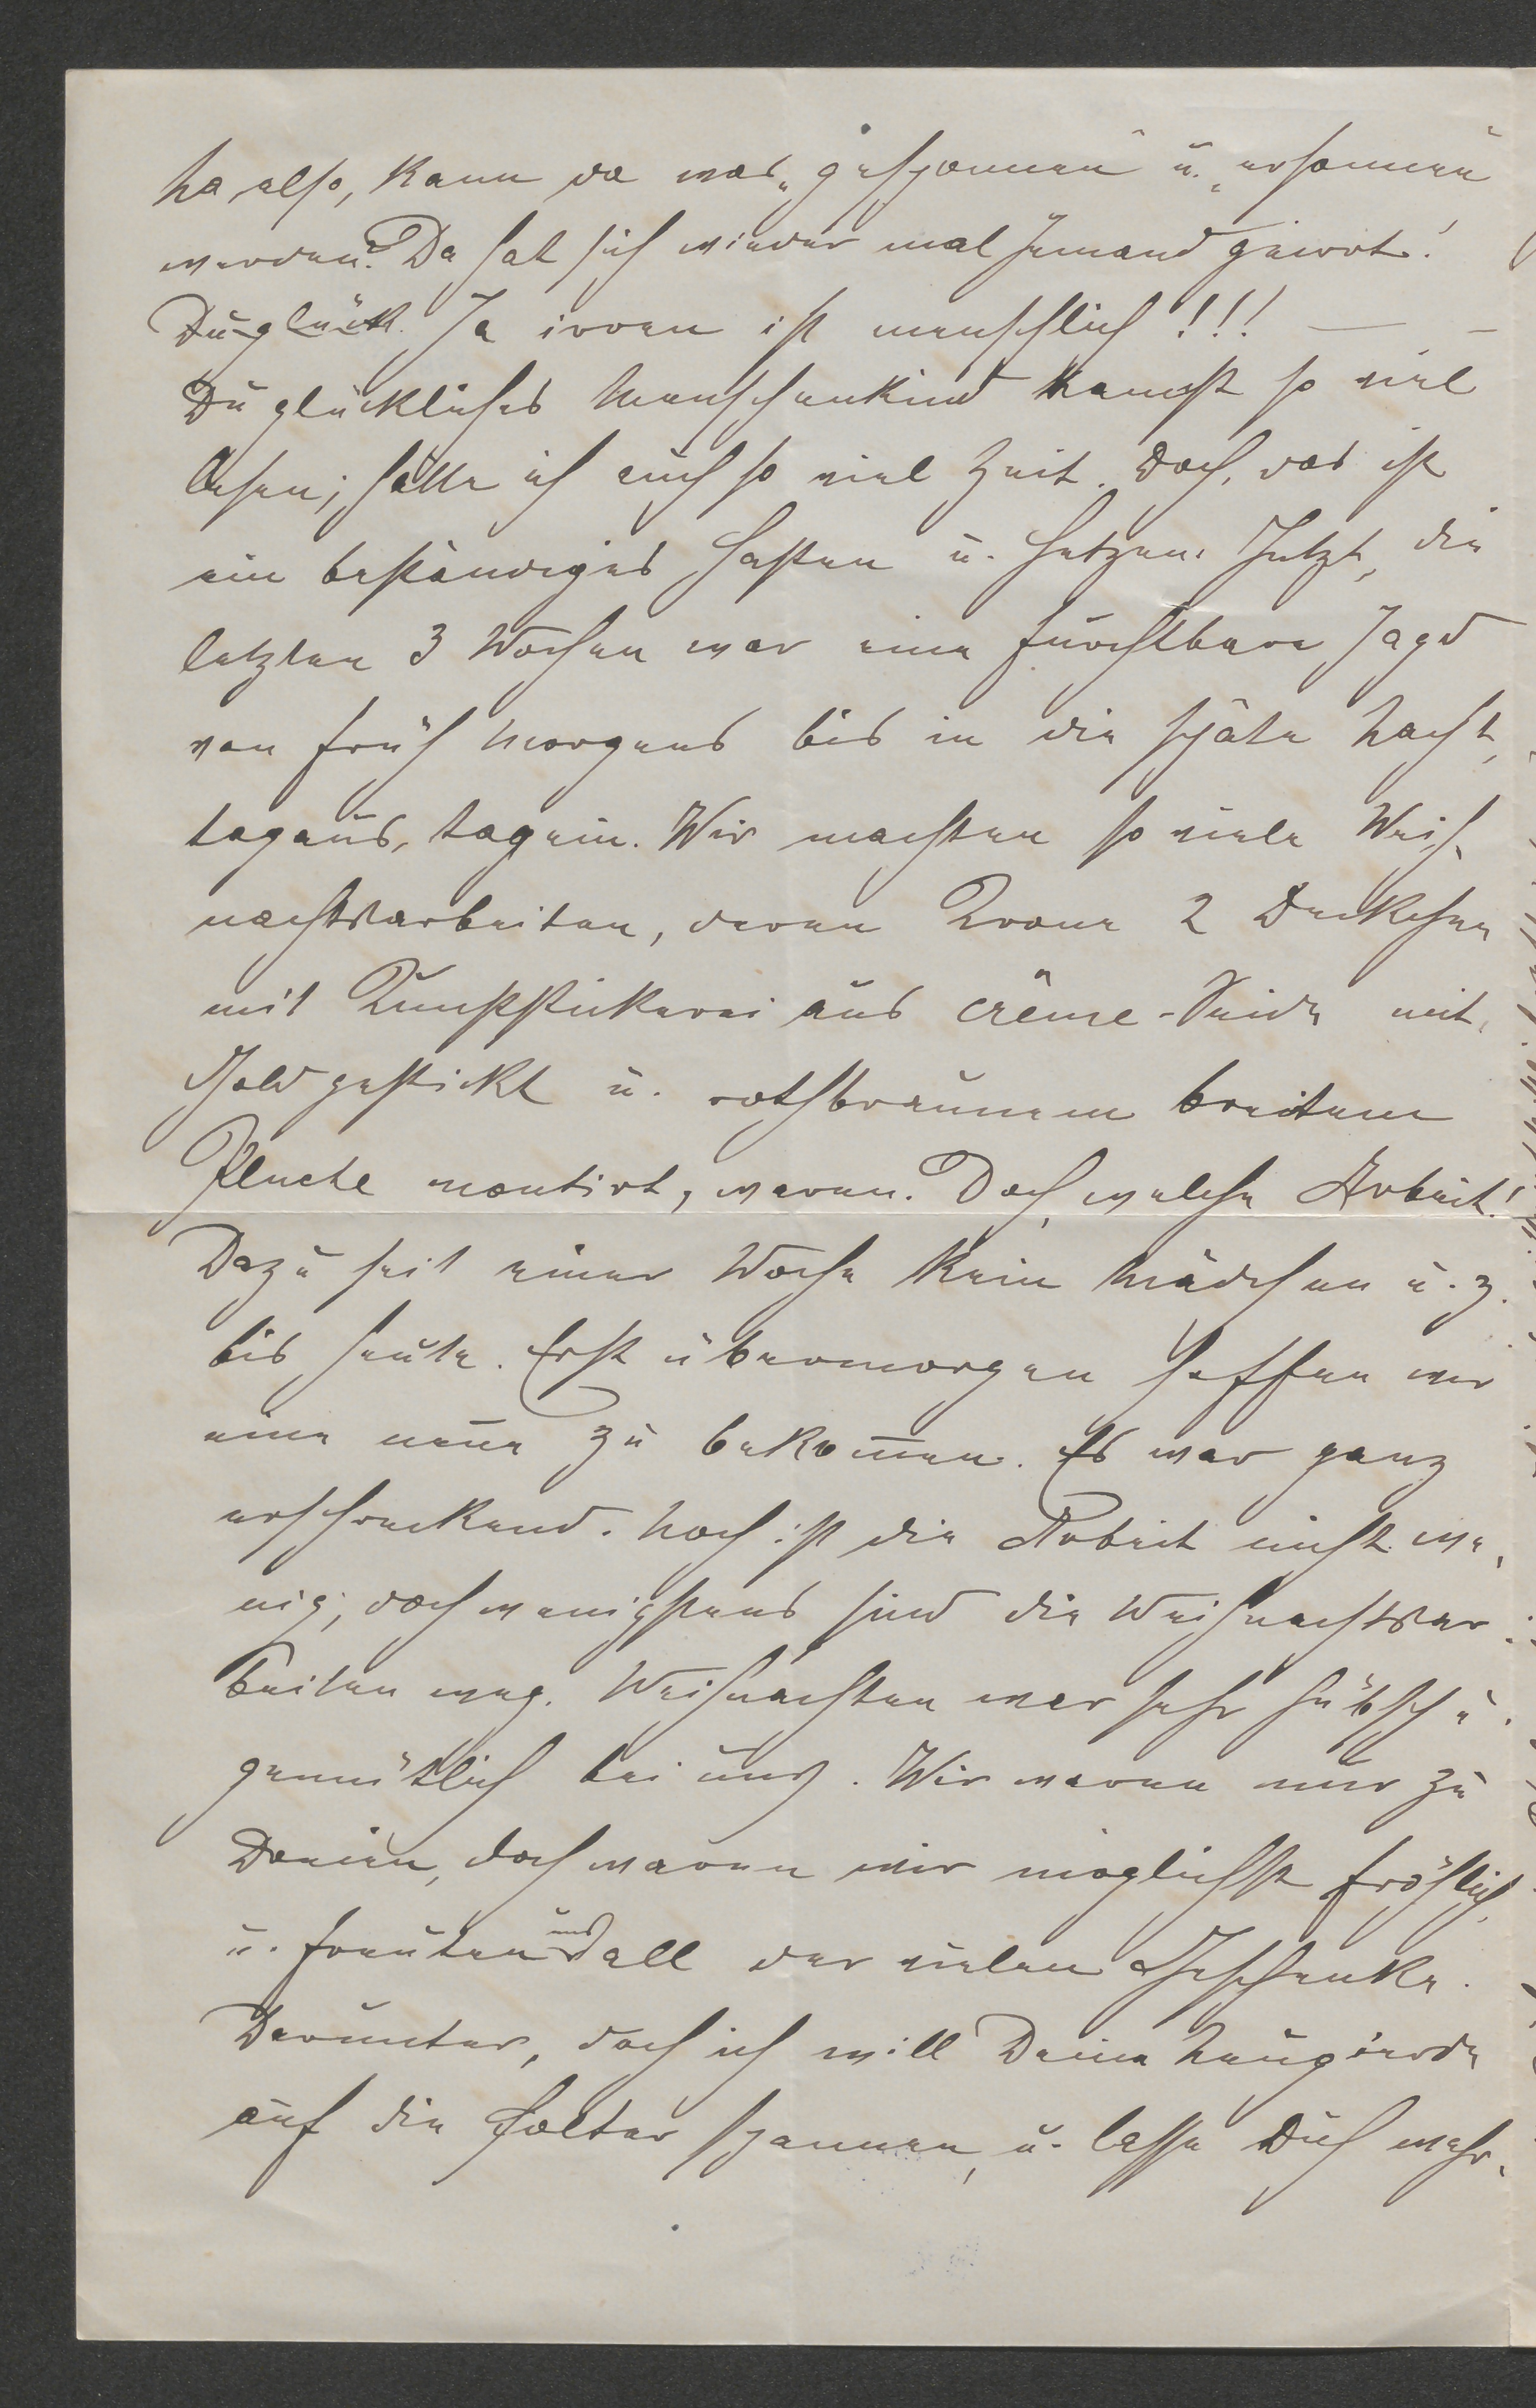 Na also, kann da was „gesponnen“ u. „ersonnen“
werden? Da hat sich wieder mal Jemand geirrt!
Du glück. Ja irren ist menschlich!!! — –
Du glückliches Menschenkind kannst so viel
lesen; hätte ich auch so viel Zeit. Doch, das ist
ein beständiges Hasten u. Hetzen. Jetzt, die
letzten 3 Wochen war eine furchtbare Jagd
von früh Morgens bis in die späte Nacht,
tagaus, tagein. Wir machten so viele Weih-
nachtsarbeiten, deren Krone 2 Deckchen
mit Kunststickerei aus crême-Seide mit
Gold gestickt u. rothbraunem breitem
Pluche montirt, waren. Doch, welche Arbeit!
Dazu seit einer Woche kein Mädchen u. z.
bis heute. Erst übermorgen hoffen wir
eine neue zu bekom̄en. Es war ganz
erschreckend. Noch ist die Arbeit nicht we-
nig, doch wenigstens sind die Weihnachtsar-
beiten weg. Weihnachten war sehr hübsch u.
gemütlich bei uns. Wir waren nur zu
Dreien, doch waren wir möglichst fröhlich
u. freuten uns all der vielen Geschenke.
Darunter, doch ich will Deine Neugierde
auf die Folter spannen, u. lasse Dich wahr-